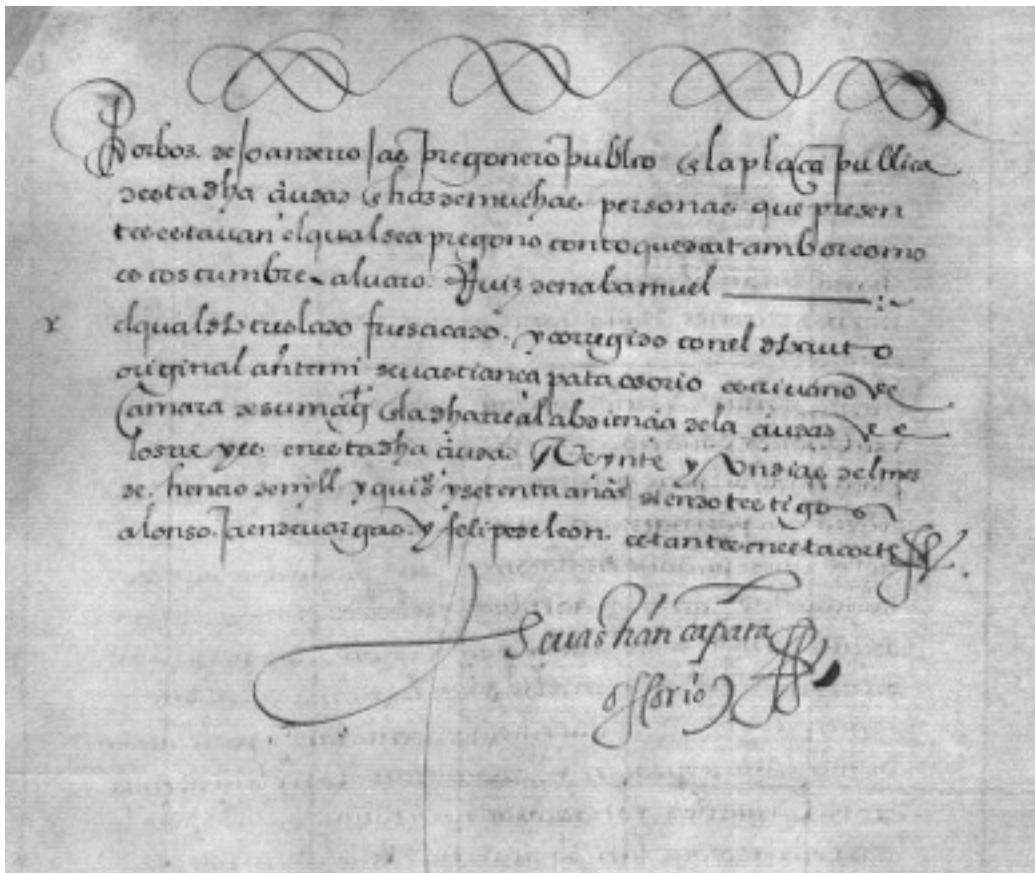 Por boz de Joan pregonero publico en la plaça publica
desta dha çiudad en haz de muchas personas que presen
tes estavan el qual se apregono con toque de atambor como
es costumbre alvaro Ruiz de nabamuel
el qual dho treslado fue sacado y corregido con el dho auto
original ante mi sevastian çapata osorio escrivano de
Camara de su magt en la dha real abdiençia de la çiudad de
los reyes en esta dha çiudad Veynte y Un dias del mes
de henero de mill y quis y setenta años siendo testigos
alonso de vargas y felipe de leon estantes en esta corte
Sevastian çapata
ossorio